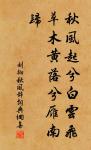 秋風起兮白雲飛
草木黃落兮雁南
歸
劉徹秋風辭詞典網書